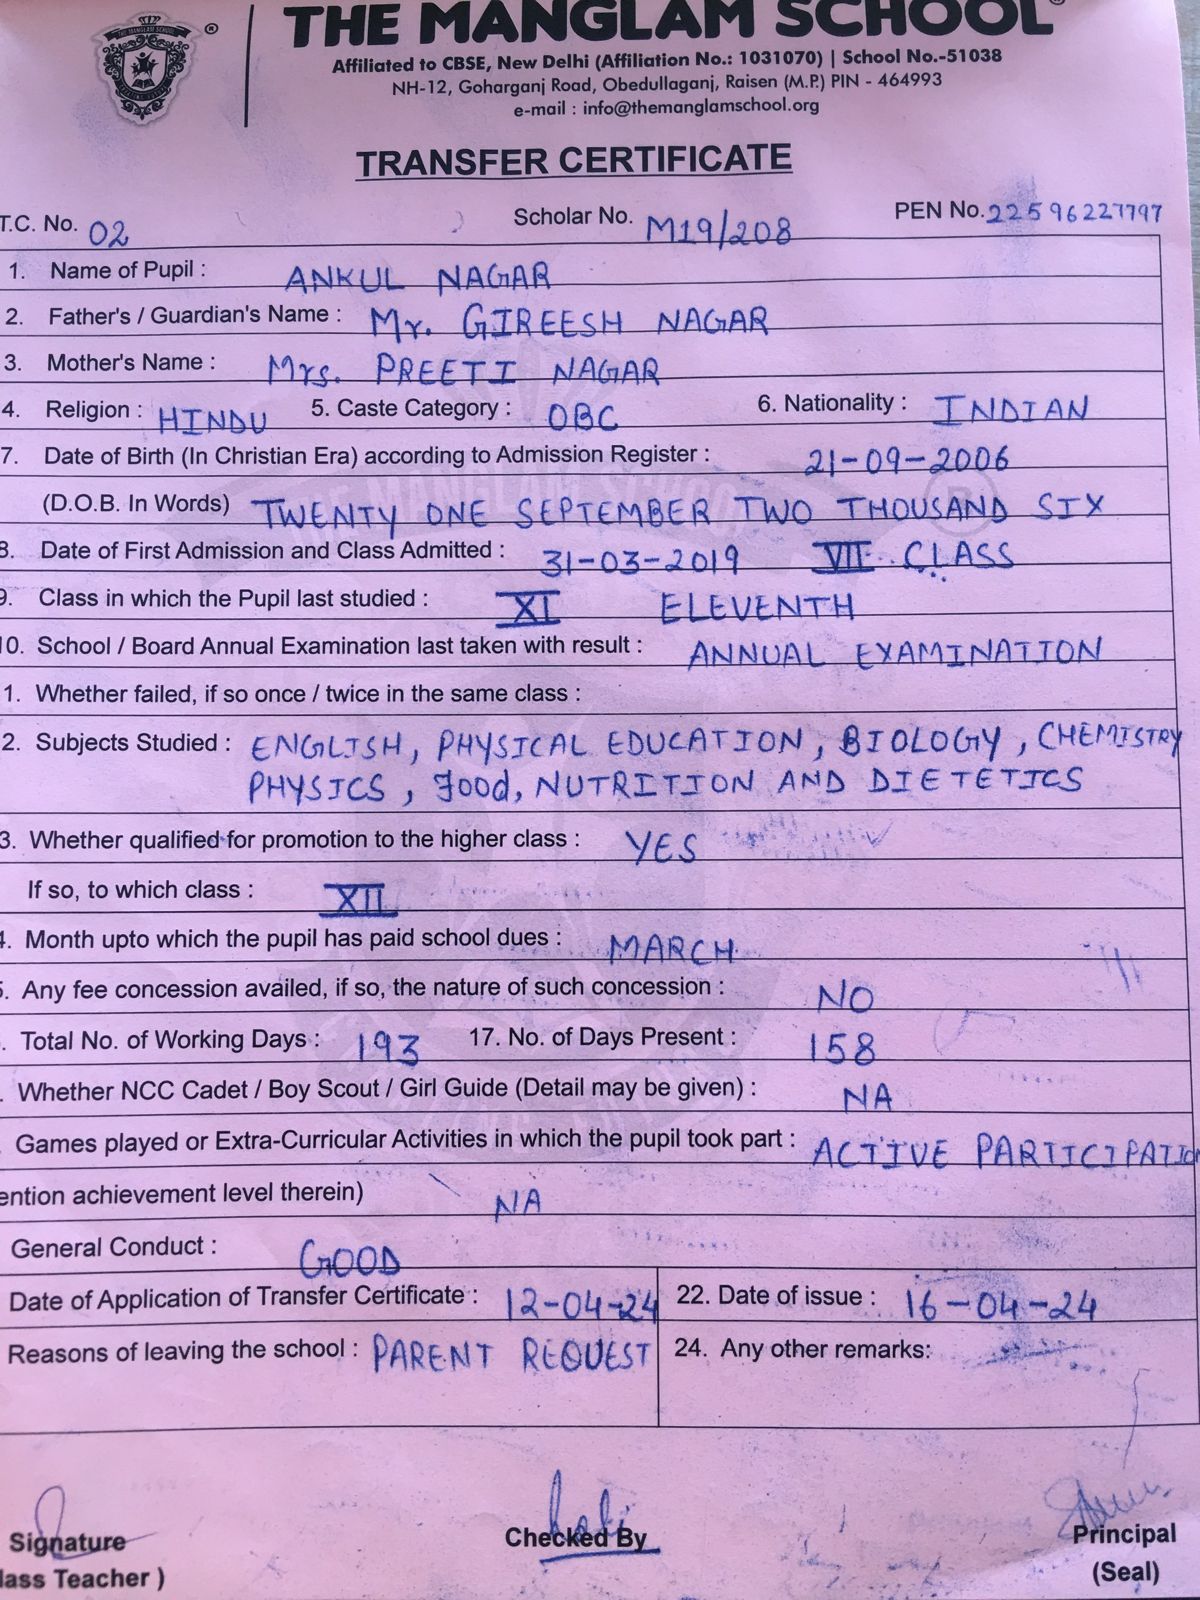 THE MANGLAM SCHOOL®
Affiliated to CBSE, New Delhi (Affiliation No.: 1031070) | School No.-51038
NH-12, Goharganj Road, Obedullaganj, Raisen (M.P.) PIN - 464993
e-mail : info@themanglamschool.org
TRANSFER CERTIFICATE
T.C. No. 02 Scholar No. M19/208 PEN No. 22596227797
1. Name of Pupil : ANKUL NAGAR
2. Father's / Guardian's Name : Mr. GIREESH NAGAR
3. Mother's Name : Mrs. PREETI NAGAR
4. Religion : HINDU 5. Caste Category : OBC 6. Nationality : INDIAN
7. Date of Birth (In Christian Era) according to Admission Register : 21-09-2006
(D.O.B. In Words) TWENTY ONE SEPTEMBER TWO THOUSAND SIX
8. Date of First Admission and Class Admitted : 31-03-2019 VII CLASS
9. Class in which the Pupil last studied : XI ELEVENTH
10. School / Board Annual Examination last taken with result : ANNUAL EXAMINATION
1. Whether failed, if so once / twice in the same class :
2. Subjects Studied : ENGLISH, PHYSICAL EDUCATION, BIOLOGY, CHEMISTRY
PHYSICS, Food, NUTRITION AND DIETETICS
3. Whether qualified for promotion to the higher class : YES
If so, to which class : XII
4. Month upto which the pupil has paid school dues : MARCH
5. Any fee concession availed, if so, the nature of such concession : NO
. Total No. of Working Days : 193 17. No. of Days Present : 158
. Whether NCC Cadet / Boy Scout / Girl Guide (Detail may be given) : NA
Games played or Extra-Curricular Activities in which the pupil took part : ACTIVE PARTICIPATION
ention achievement level therein) NA
General Conduct : GOOD
Date of Application of Transfer Certificate : 12-04-24 22. Date of issue : 16-04-24
Reasons of leaving the school : PARENT REQUEST 24. Any other remarks:
Signature Checked By Principal
lass Teacher ) (Seal)